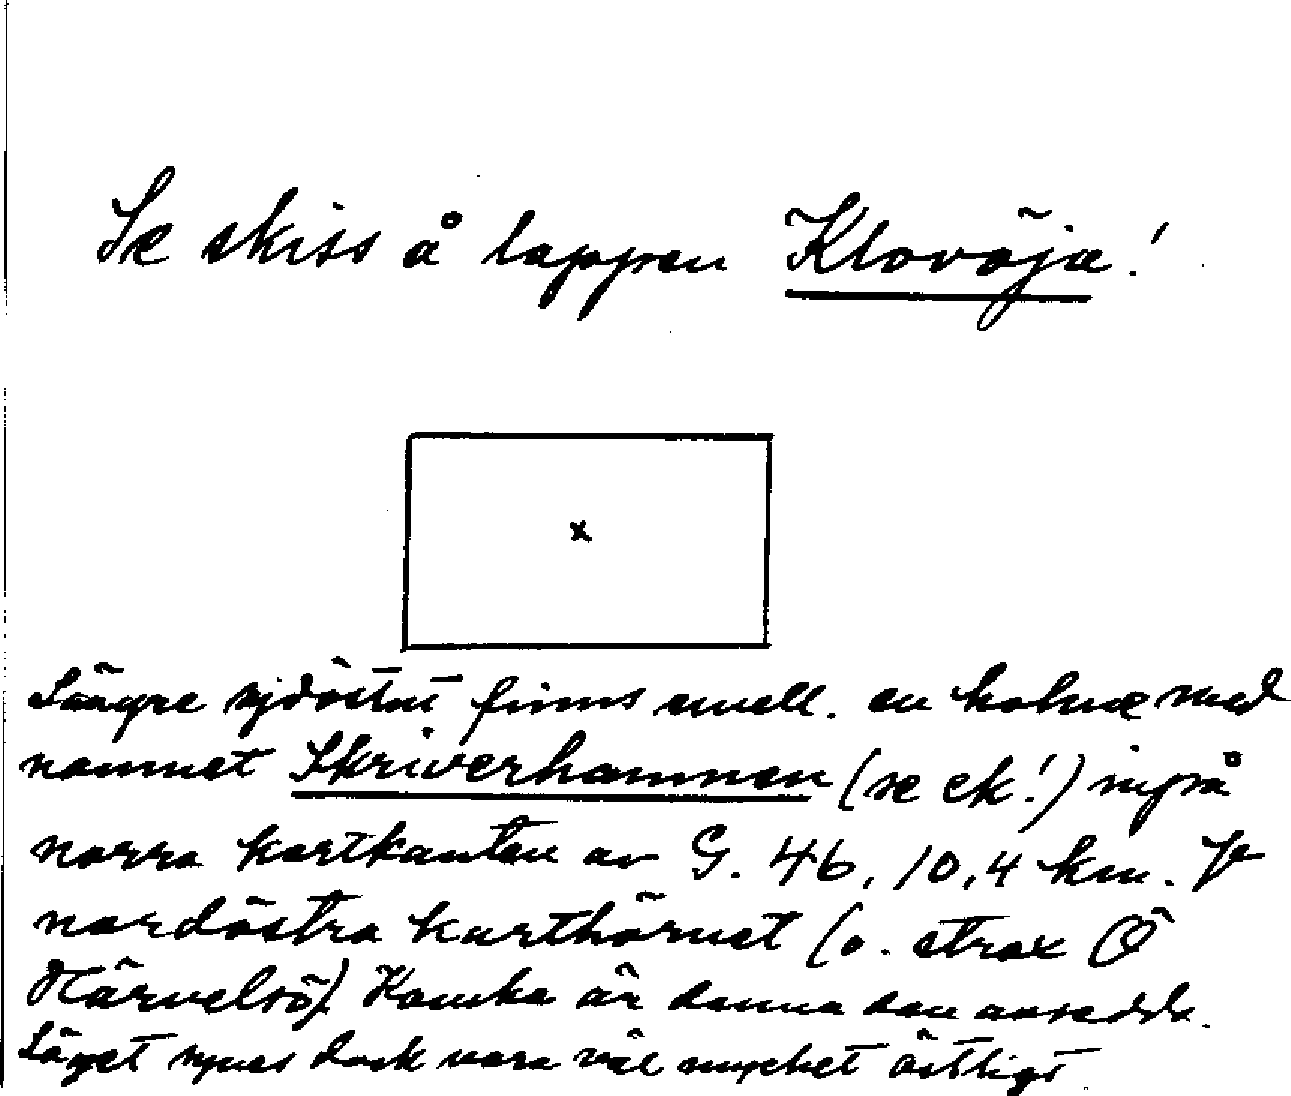 Se skiss å lappen Klovöja!
x
Längre sydöstut finns emell. en holme med
namnet Skriverhamnen (se ek!) inpå
norra kartkanten av G. 46, 10,4 km. V
nordöstra karthörnet (o. strax Ö
Närvelsö). Kanske är denna den avsedda.
Läget synes dock vara väl mycket östligt